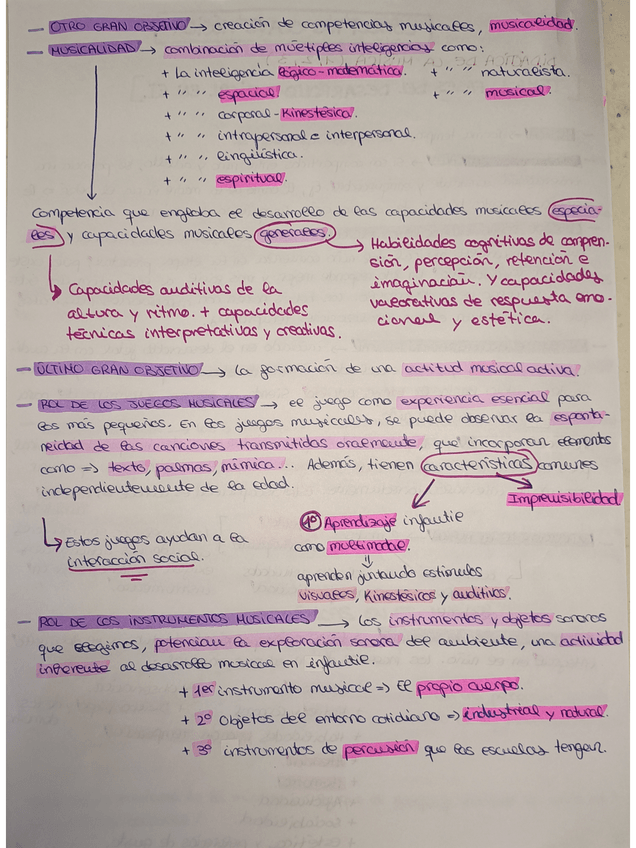 - OTRO GRAN OBJETIVO → creación de competencias musicales, musicalidad.
- MUSICALIDAD → combinación de múltiples inteligencias como:
+ La inteligencia lógico-matemática. + " " naturalista.
+ " " espacial + " " musical.
+ " " corporal-kinestésica.
+ " " intrapersonal e interpersonal.
+ " " lingüística.
+ " " espiritual.
Competencia que engloba el desarrollo de las capacidades musicales especia-
les y capacidades musicales generales.
→ Habilidades cognitivas de compren-
sión, percepción, retención e
imaginación. Y capacidades
valorativas de respuesta emo-
cional y estética.
→ Capacidades auditivas de la
altura y ritmo. + capacidades
técnicas interpretativas y creativas.
- ÚLTIMO GRAN OBJETIVO → La formación de una actitud musical activa.
- ROL DE LOS JUEGOS MUSICALES → el juego como experiencia esencial para
los más pequeños. En los juegos musicales, se puede observar la esponta-
neidad de las canciones transmitidas oralmente, que incorporan elementos
como => texto, palmas, mímica... Además, tienen características comunes
independientemente de la edad.
Imprevisibilidad
→ Estos juegos ayudan a la
interacción social.
1º Aprendizaje infantil
como multimodal.
⇓
aprenden juntando estímulos
visuales, kinestésicos y auditivos.
- ROL DE LOS INSTRUMENTOS MUSICALES → Los instrumentos y objetos sonoros
que elegimos, potencian la exploración sonora del ambiente, una actividad
inherente al desarrollo musical en infantil.
+ 1er instrumento musical => El propio cuerpo.
+ 2º Objetos del entorno cotidiano => industrial y natural.
+ 3º instrumentos de percusión que las escuelas tengan.